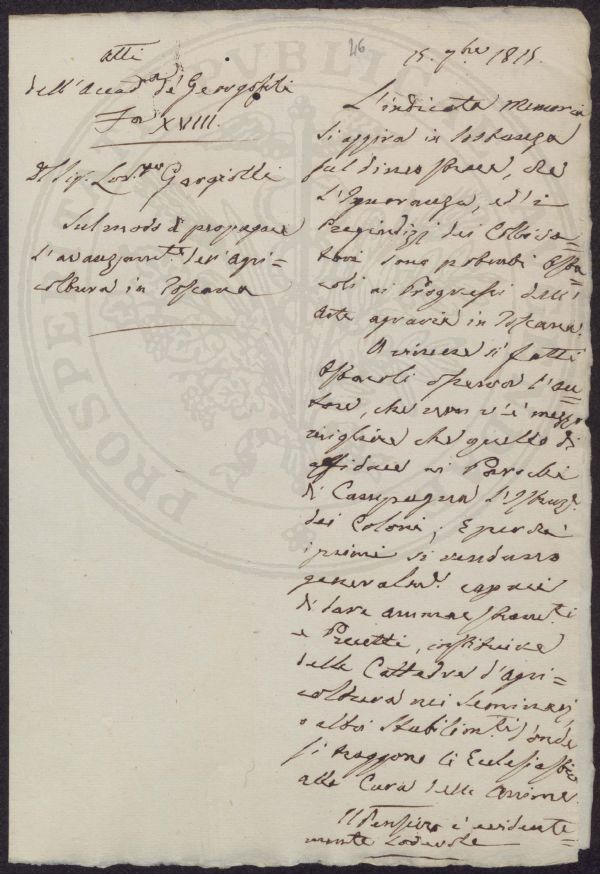 46
15. 7bre 1815.
Atti
dell'Accad.a de' Georgofili
For XVIII.
Del Sig.
Gargiolli
Sul modo di propagare
l'avanzam.to dell'agri=
coltura in Toscana
L'indicata Memoria
si aggira in sostanza
sul dimostrare, che
l'Ignoranza, ed i
Pregiudizj dei Coltiva=
tori sono potenti Osta=
coli ai Progressi dell'
Arte agraria in Toscana.
A vincere sì fatti
Ostacoli osserva l'Au=
tore, che non v'è mezzo
migliore che quello di
affidare ai Parochi
di Campagna l'Istruz.e
dei Coloni; E perchè
i primi si rendano
generalm.te capaci
di dare ammaestram.ti
e Precetti, instituire
delle Cattedre d'agri=
coltura nei Seminarj,
o altri Stabilim.ti d'onde
si traggono li Ecclesiastici
alla Cura delle Anime.
Il Pensiero è evidente=
mente Lodevole
PUBLIC
PROSPERITÀ